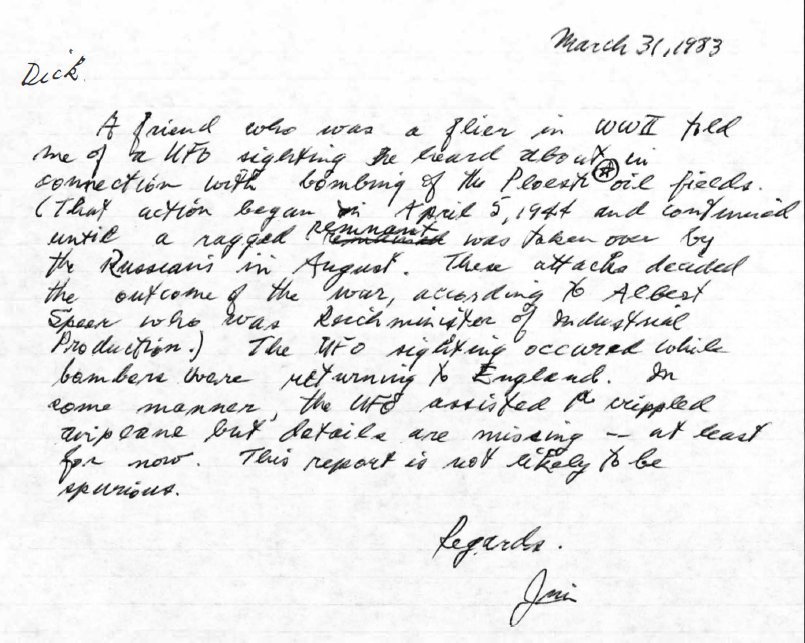 March 31, 1983
Dick.
A friend who was a flier in WWII told
me of a UFO sighting he heard about in
connection with bombing of the Ploesti oil fields.
(That action began in April 5, 1944 and continued
until a ragged remnant was taken over by
the Russians in August. These attacks decided
the outcome of the war, according to Albert
Speer who was Reichminister of Industrial
Production.) The UFO sighting occured while
bombers were returning to England. In
some manner, the UFO assisted a crippled
airplane but details are missing -- at least
for now. This report is not likely to be
spurious.
Regards.
Jim